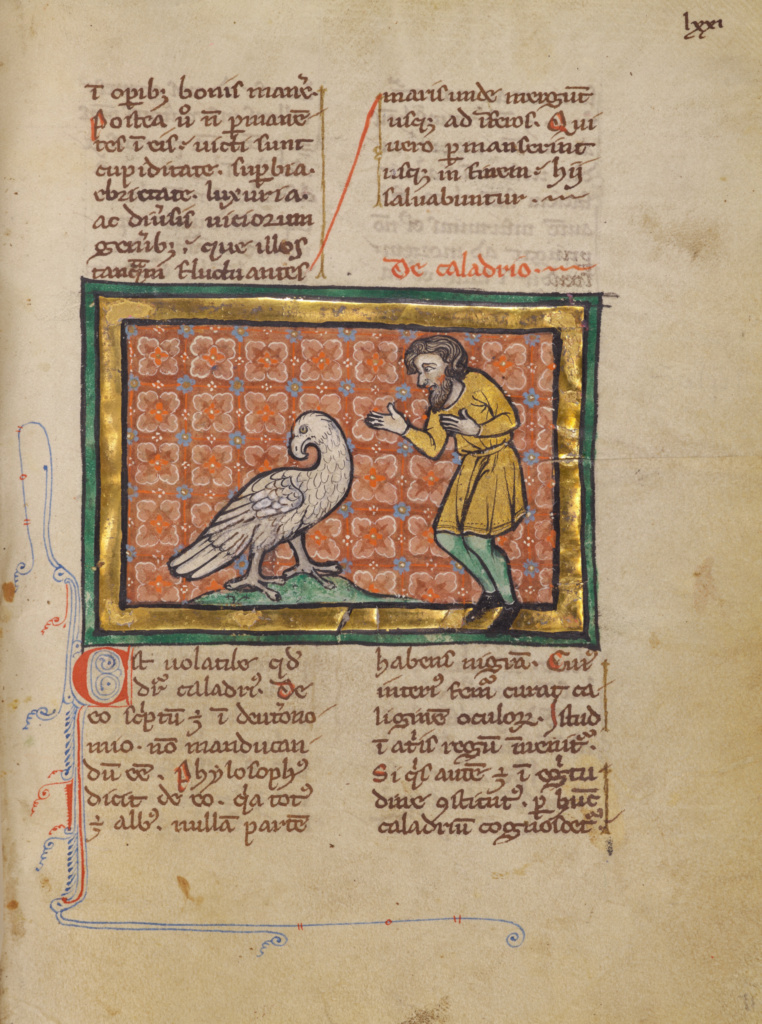 lxxi
ī opibꝫ bonis mane͛.
Postea ů n̄ ꝑmanē
tes ī eis · uicti sunt
cupiditate . suꝑbia .
ebrietate . luxuria .
ac diu͛sis uiciorum
gen͛ibꝫ ; que illos
tanq̄m fluctuantes
maris unde mergūt
usqꝫ ad īferos . Qui
uero ꝑmanserint
usqꝫ in finem · hij
saluabuntur .
De caladrio .
Est uolatile qd̄
dr̄ caladri⁹ . De
eo scͥptū ⁊ ī deut͛ono
mio . nō manducan
dū eē . Phylosoph⁹
dicit de eo . qͥa tot⁹
⁊ alb⁹ . nullā partē
habens nigrā . Cui⁹
interi⁹ fem͛ curat ca
liginē oculoꝝ . Istud
ī atͥis regū īuenit᷑ .
Si qͥs autē ⁊ ī egͥtu
dine ꝯstitut⁹ . ꝑ hūc
caladriū cognoscet᷑ .